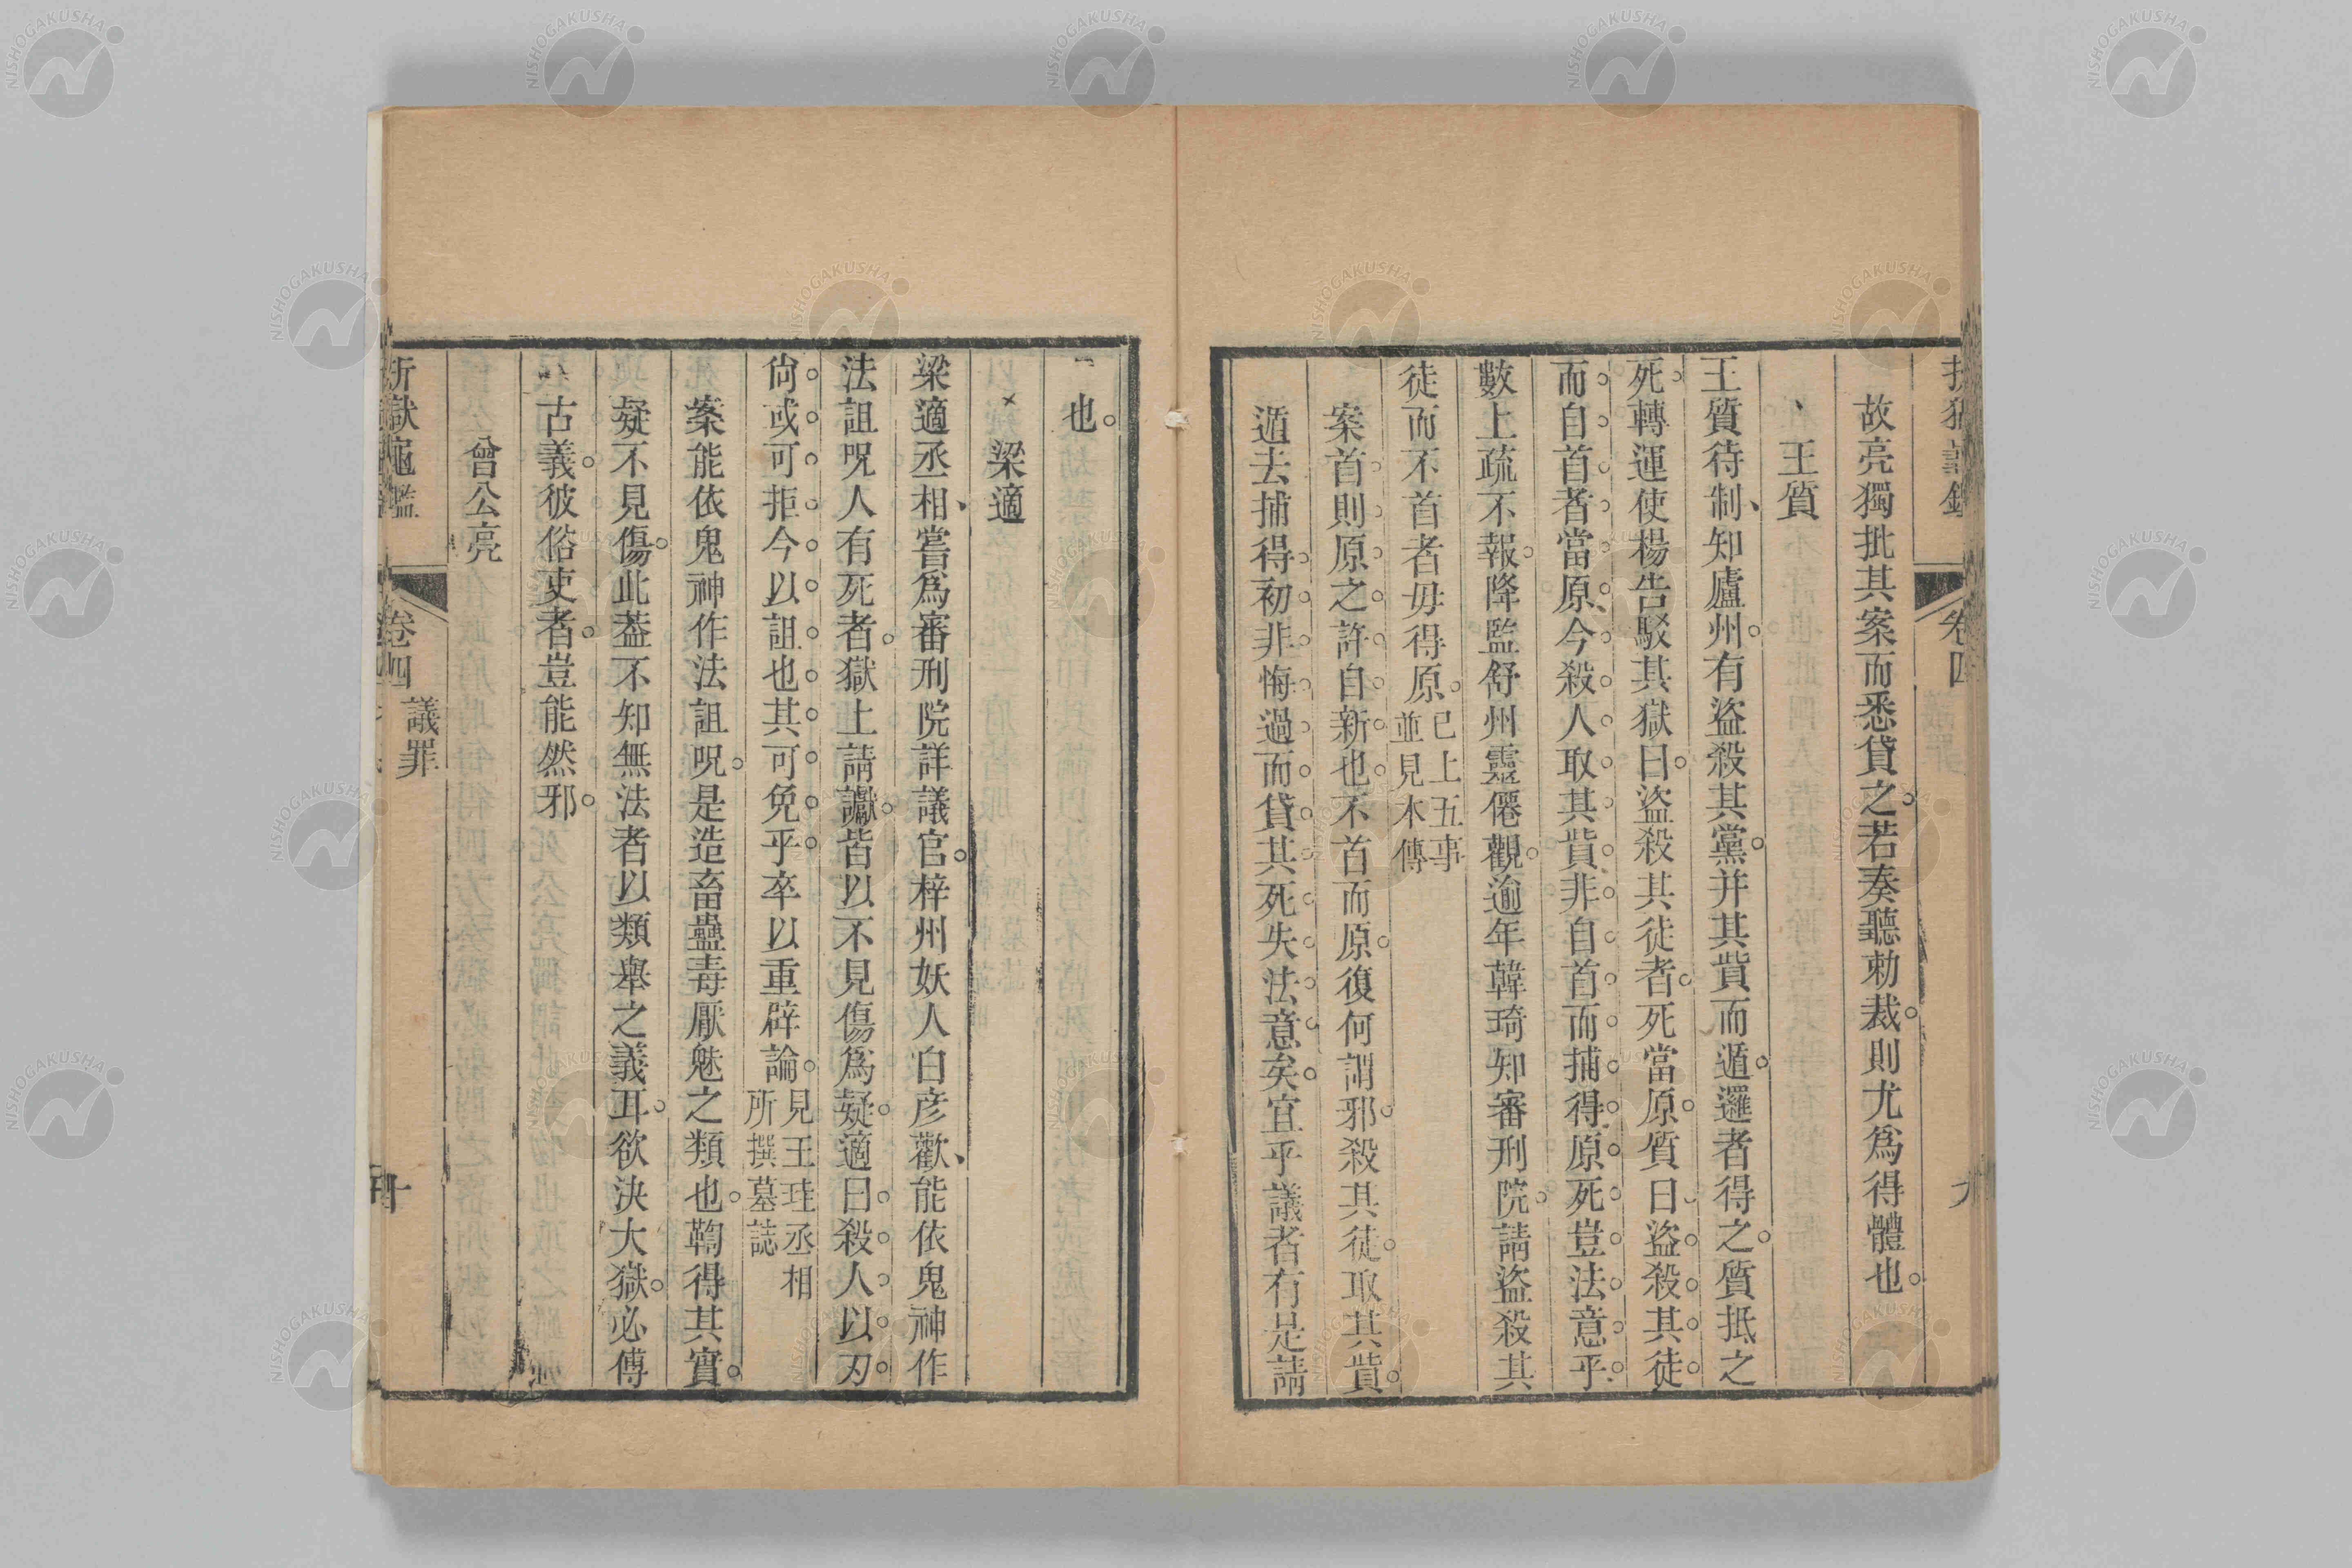 故亮獨批其案而悉貸之若奏聽勅裁則尤爲得體也
王質
王質待制知廬州有盜殺其黨并其貲而遁邏者得之質抵之
死轉運使楊告駁其獄曰盜殺其徒者死當原質曰盜殺其徒
而自首者當原今殺人取其貲非自首而捕得原死豈法意乎
數上疏不報降監舒州靈僊觀逾年韓琦知審刑院請盜殺其
徒而不首者毋得原已上五事並見本傳
案首則原之許自新也不首而原復何謂邪殺其徒取其貲
遁去捕得初非悔過而貸其死失法意矣宜乎議者有是請
也
梁適
梁適丞相嘗爲審刑院詳議官梓州妖人白彦歡能依鬼神作
法詛呪人有死者獄上請讞皆以不見傷爲疑適曰殺人以刃
尙或可拒今以詛也其可免乎卒以重辟論見王珪丞相所撰墓誌
案能依鬼神作法詛呪是造畜蠱毒厭魅之類也鞫得其實
疑不見傷此葢不知無法者以類舉之義耳欲決大獄必傅
古義彼俗吏者豈能然邪
曾公亮
折獄龜鑑 卷四 議罪 十
NISHOGAKUSHA